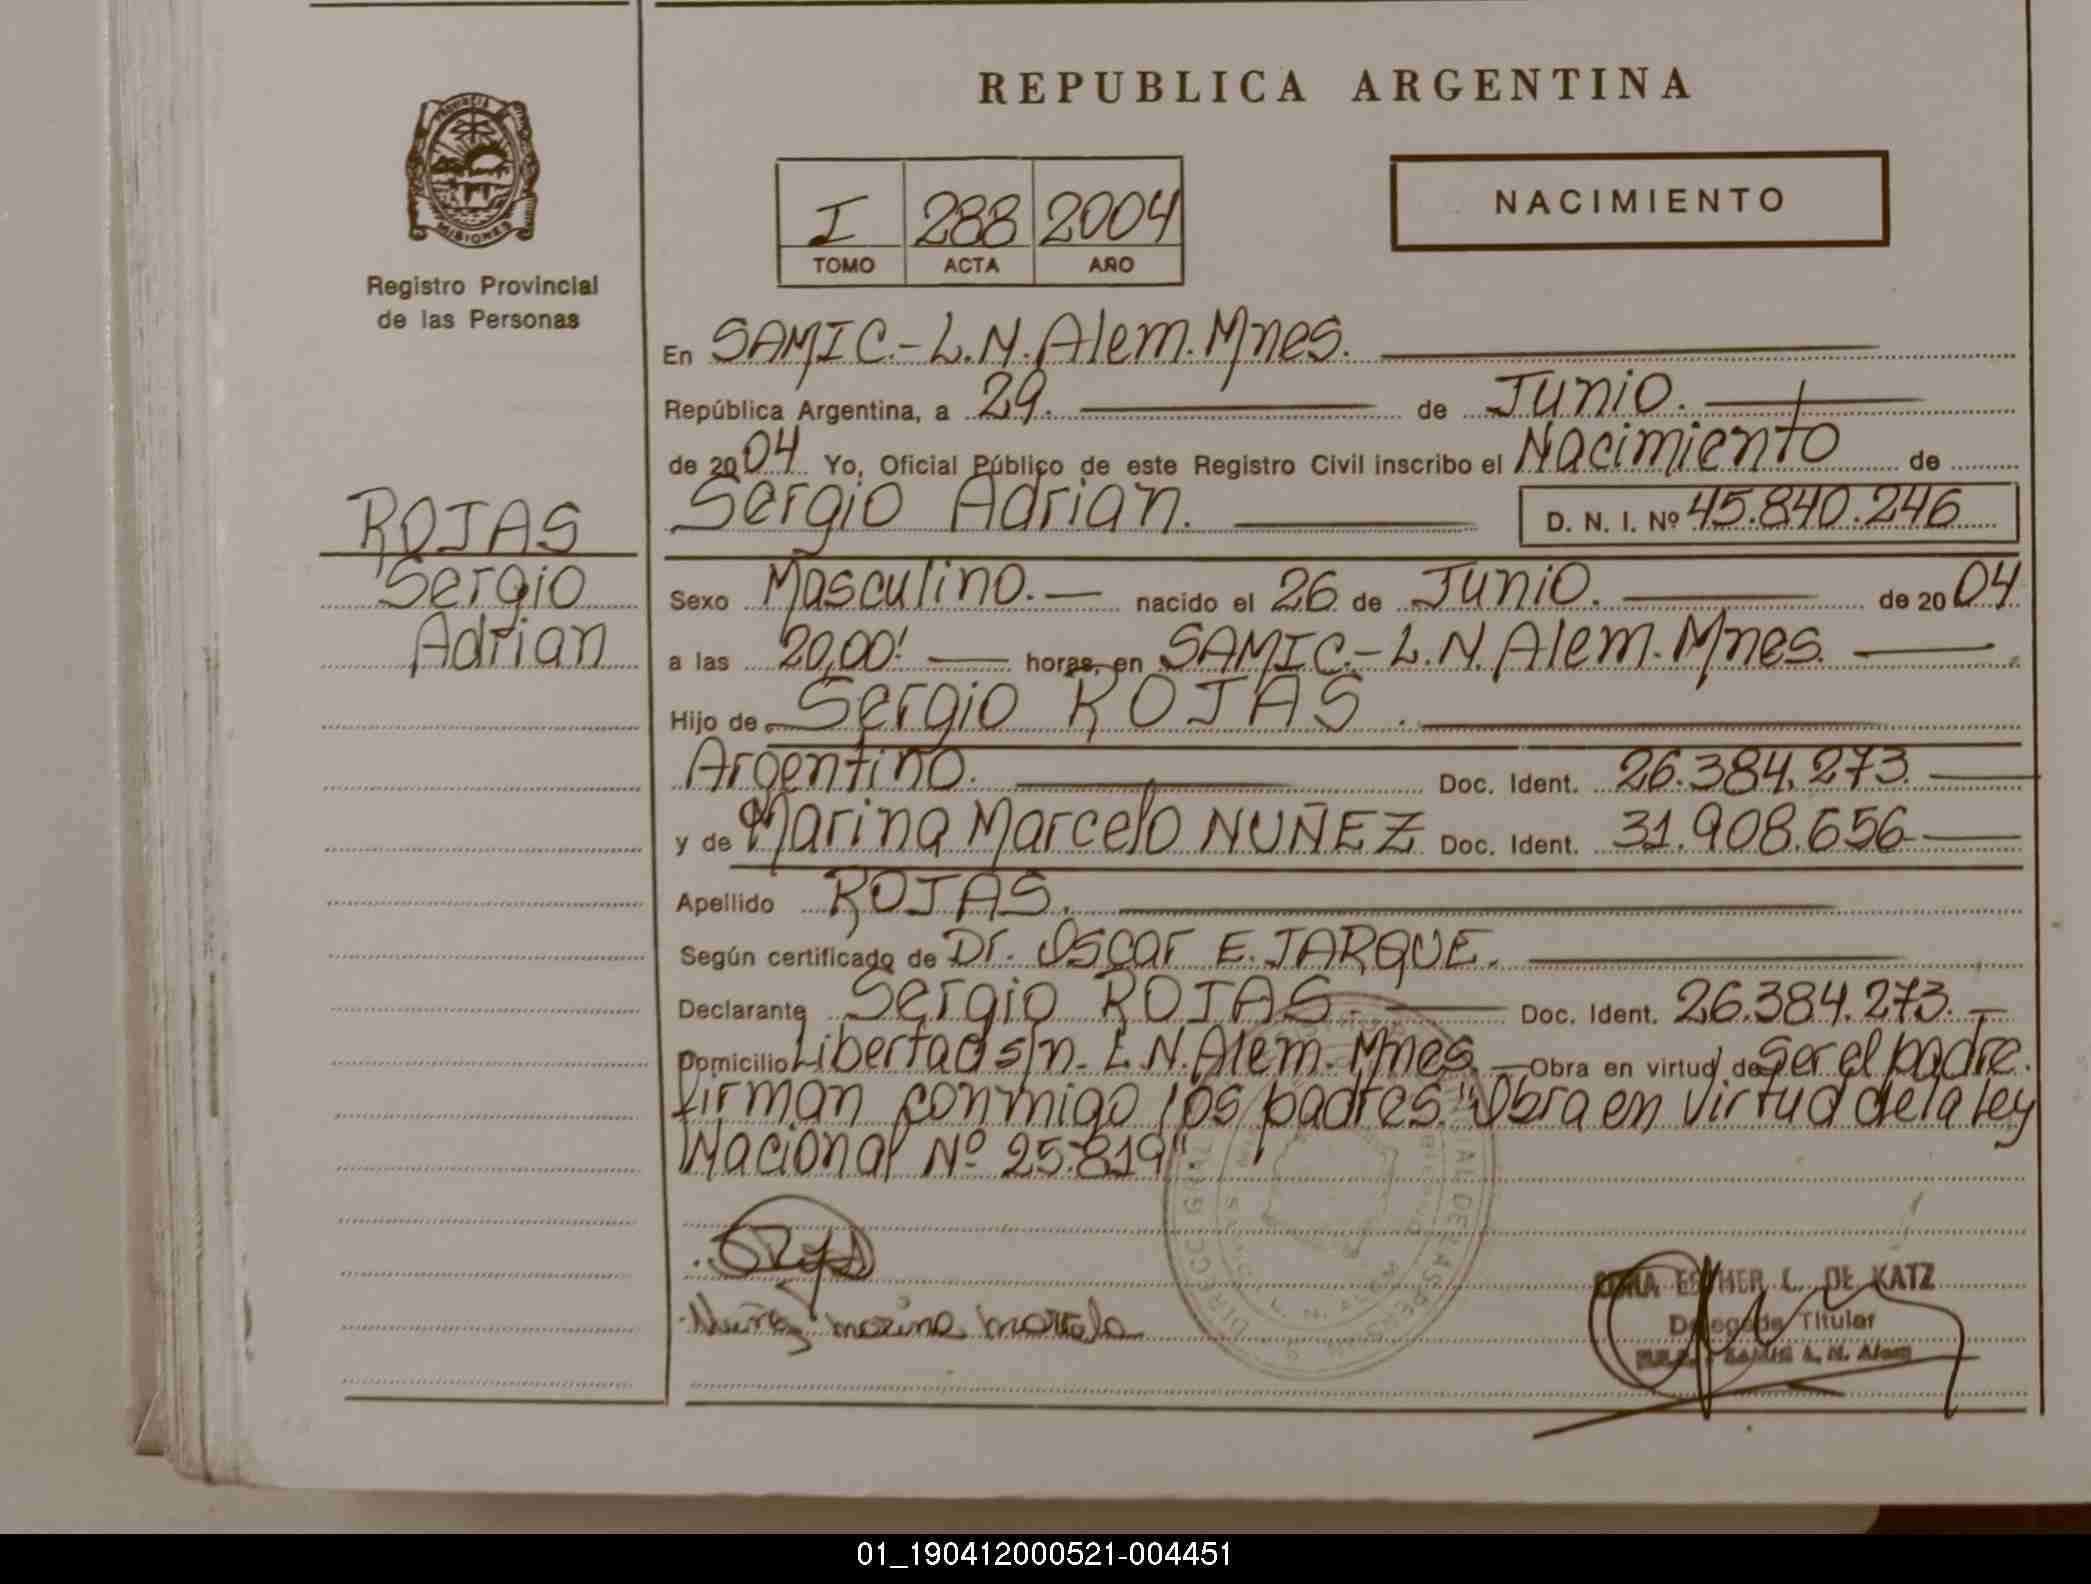 REPUBLICA ARGENTINA
PROVINCIA
MISIONES
Registro Provincial
de las Personas
I 288 2004
TOMO ACTA AÑO
NACIMIENTO
En SAMIC.-L.N.Alem.Mnes.
República Argentina, a 29. de Junio.
de 2004 Yo, Oficial Público de este Registro Civil inscribo el Nacimiento de
Sergio Adrian. D. N. I. Nº 45.840.246
ROJAS
Sergio
Adrian
Sexo Masculino. nacido el 26 de Junio. de 2004
a las 20,00! horas, en SAMIC.-L.N.Alem.Mnes.
Hijo de Sergio ROJAS.
Argentino. Doc. Ident. 26.384.273.
y de Marina Marcelo NUÑEZ Doc. Ident. 31.908.656
Apellido ROJAS.
Según certificado de Dr. Oscar E. JARQUE.
Declarante Sergio ROJAS. Doc. Ident. 26.384.273.
Domicilio Libertad s/n. L.N.Alem. Mnes. Obra en virtud de ser el padre.
firman conmigo los padres. "Obra en virtud de la ley
Nacional Nº 25.819"
Nuñez marina marcela
ESTHER L. DE KATZ
Delegada Titular
L. N. Alem
01_190412000521-004451